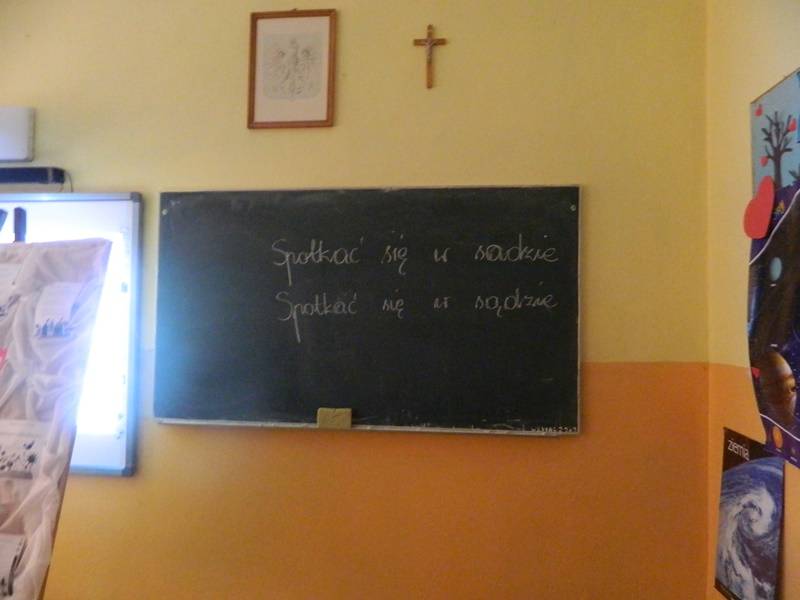 Spotkać się w sadzie
Spotkać się w sądzie
ziemia